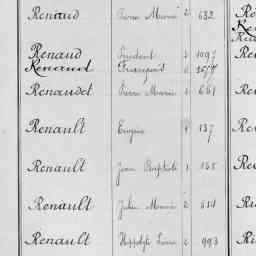 Renaud Pierre Marie 2 632
Renaud Prudent 3 1097
Renaud François
Renaudet Pierre Marie 2 661
Renault Eugène 1 137
Renault Jean Baptiste 1 165
Renault Jules Marie 2 614
Renault Hippolyte 2 993